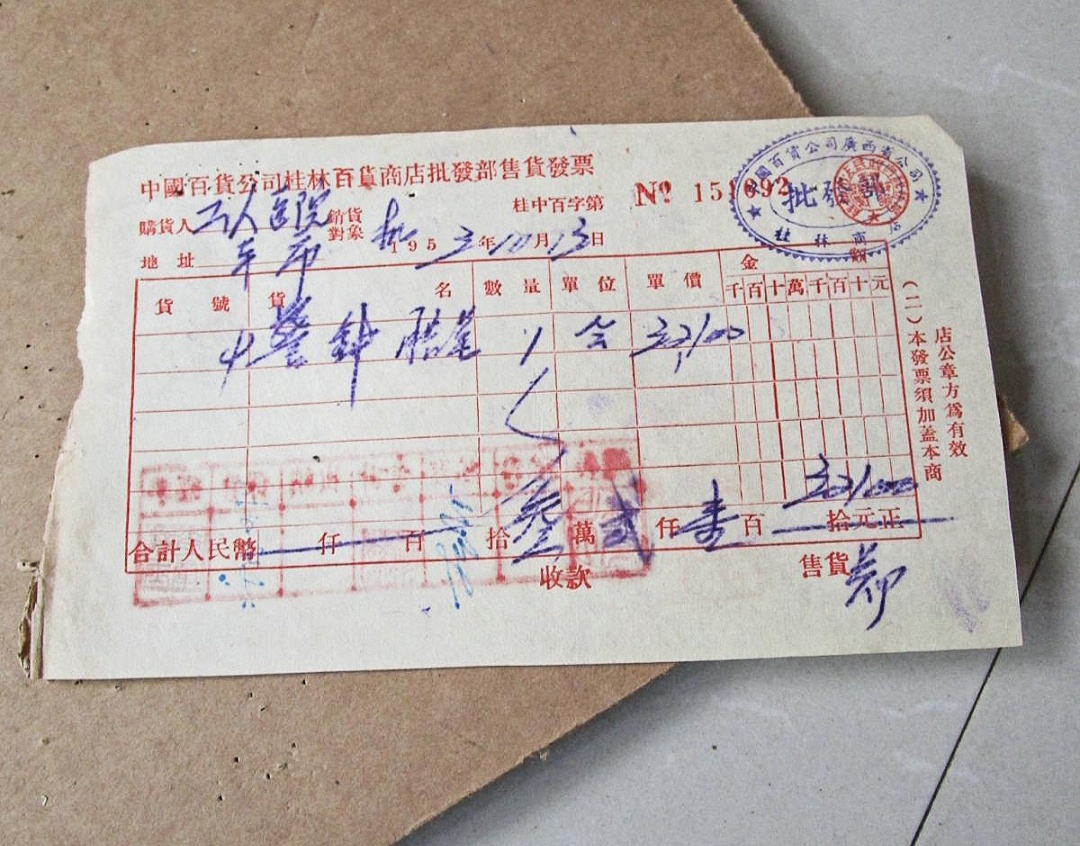 中國百貨公司桂林百貨商店批發部售貨發票
桂中百字第 № 151692
中國百貨公司廣西省公司
批發部
桂林商
購貨人 工人醫院 銷貨對象 机 1953年10月13日
地址 本市
貨號 貨名 數量 單位 單價 金額
千百十萬千百十元
1 32,100
32,100
合計人民幣 仟 百 拾 叁 萬 弍 仟 壹 百 拾元正
收款 售貨
(二)本發票須加蓋本商
店公章方爲有效